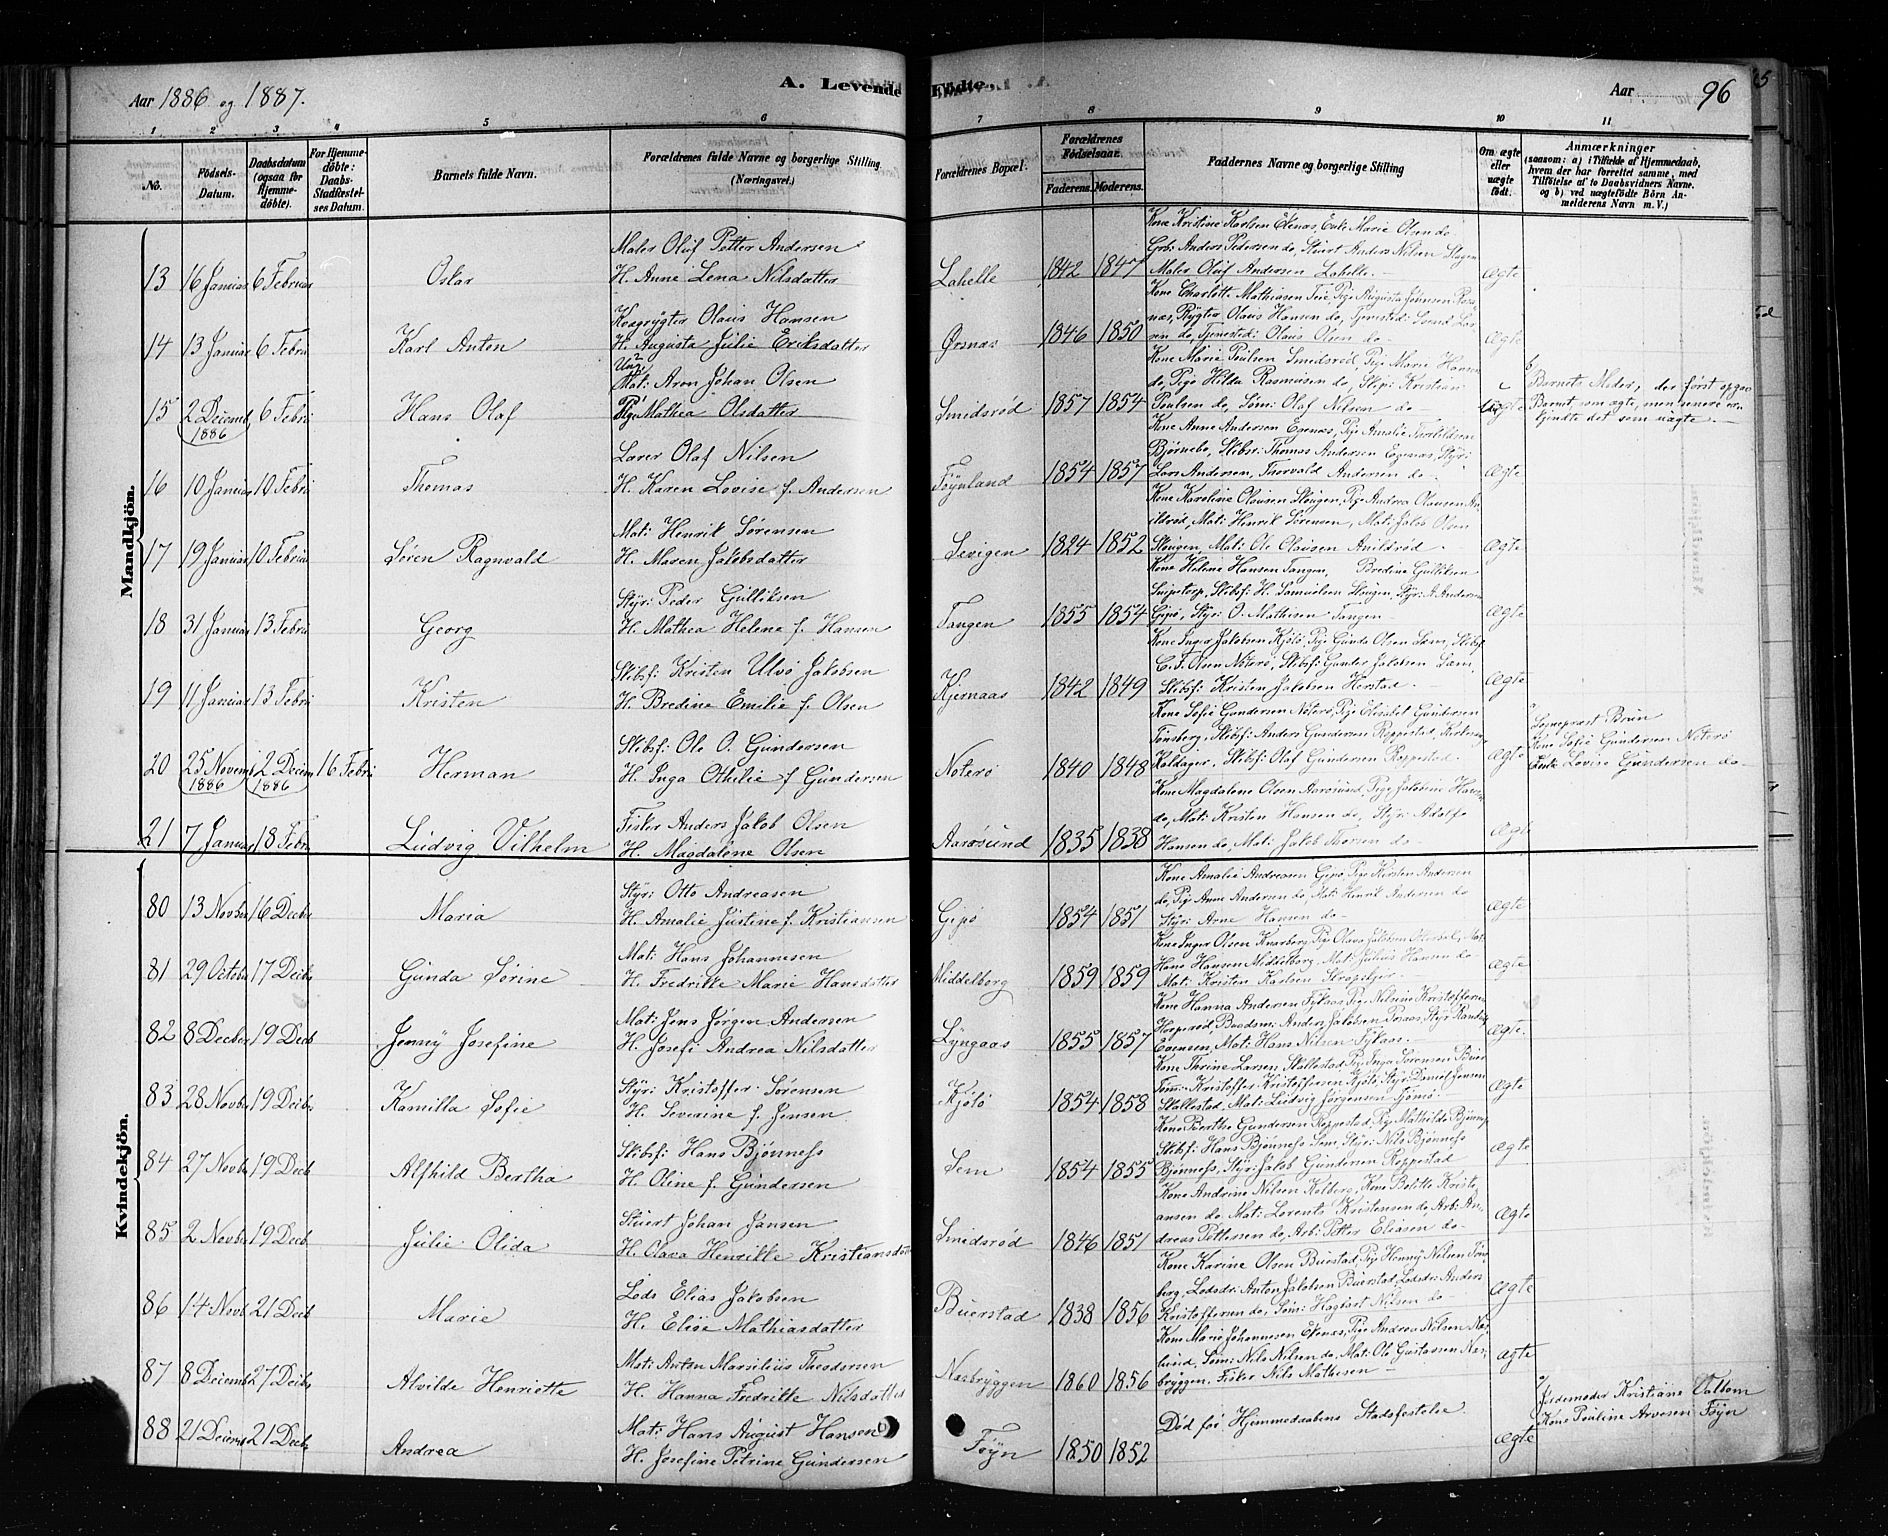 Aar 1886 og 1887.
A. Levende Födte.
Aar
96
1 2 3 4 5 6 7 8 9 10 11
No.
Födsels-Datum.
Daabsdatum (ogsaa for Hjemme-döbte).
For Hjemme-döbte: Daabs-Stadfæstelses Datum.
Barnets fulde Navn.
Forældrenes fulde Navne og borgerlige Stilling. (Næringsvei.)
Forældrenes Bopæl.
Forældrenes Födselsaar.
Faderens. Moderens.
Faddernes Navne og borgerlige Stilling
Om ægte eller uægte født.
Anmærkninger
(saasom: a) i Tilfælde af Hjemmedaab, hvem der har forrettet samme, med Tilföielse af to Daabsvidners Navne, og b) ved uægtefödte Börn Anmelderens Navn m. V.)
Mandkjön.
13 16 Januar 6 Februar Oskar
Maler Oluf Petter Andersen
H. Anne Lena Nilsdatter
Lahelle 1842 1847
Kone Kristine Karlsen Ekenæs, Enke Marie Olsen do
Grb: Anders Pedersen do, Stuert Anders Nilsen Slagen
Maler Oluf Andersen Lahelle.
Ægte
14 13 Januar 6 Febru Karl Anton
Kvægrygter Olaus Hansen
H. Augusta Julie Eriksdatter
Ørsnæs 1846 1850
Kone Charlotte Mathiasen Teie, Pige Augusta Johnsen
Rygter Olaus Hansen do, Tjenestedr: Svend
do, Tjenestdr: Olaus Olsen do
Ægte
15 2 Decemb 1886 6 Febru Hans Olaf
Ung Mat: Aron Johan Olsen
Pige Mathea Olsdatter
Smidsrød 1857 1854
Kone Marie Poulsen Smidsrød, Pige Marie Hansen
do, Pige Hilda Rasmusen do, Skip: Kristian
Poulsen do, Søm: Olaf Nilsen do
Uægte
Barnets Moder, der først opgav
Barnet som ægte, men senere er-
kjendte det som uægte.
16 10 Januar 10 Febru Thomas
Lærer Olaf Nilsen
H. Karen Lovise f. Andersen
Føynland 1854 1857
Kone Anne Andersen Egenæs, Pige Amalie
Bjørnebo, Skbsr: Thomas Andersen Egenæs, Styr:
Lars Andersen, Thorvald Andersen do
Ægte
17 19 Januar 10 Februa Søren Ragnvald
Mat: Henrik Sørensen
H. Maren Jakobsdatter
Sevigen 1824 1852
Kone Karoline Olausen Skougen, Pige Andrea Olausen
Mat: Henrik Sørensen, Mat: Jakob Olsen
Skougen, Mat: Ole Olausen Anildrød
Ægte
18 31 Januar 13 Febru Georg
Styr: Peder Gulliksen
H. Mathea Helene f. Hansen
Tangen 1855 1854
Kone Helene Hansen Tangen, Bredine Gulliksen
Skibsf: H. Samuelsen Skougen, Styr: A. Andersen
Gipø, Styr: O. Mathisen Tangen
Ægte
19 11 Januar 13 Febru Kristen
Skibsf: Kristen Ulvø Jakobsen
H. Bredine Emilie f. Olsen
Kjernaas 1842 1849
Kone Inger Jakobsen Kjøtø, Pige Gunda Olsen Sæm, Skibsf
C. F. Olsen Nøterø, Skibsf: Gunder Jakobsen Sæm
Skibsf: Kristen Jakobsen Herstad
Ægte
20 25 Novemb 1886 2 Decem 1886 16 Febru Herman
Skibsf: Ole O. Gundersen
H. Inga Othilie f Gundersen
Nøterø 1840 1848
Kone Sofie Gundersen Nøterø, Pige Elisabet Gundersen
Tønsberg, Skibsf: Anders Gundersen Roppestad,
Kaldager, Skibsf: Olaf Gundersen Roppestad
Ægte
Sogneprest Brun
Kone Sofie Gundersen Nøterø
Enke Lovise Gundersen do
21 7 Januar 18 Febru Ludvig Vilhelm
Fisker Anders Jakob Olsen
H. Magdalene Olsen
Aarøsund 1835 1838
Kone Magdalene Olsen Aarøsund, Pige Jakobine Hansen
do, Mat: Kristen Hansen do, Styr: Adolf
Hansen do, Mat: Jakob Thorsen do
Ægt
Kvindekjön.
80 13 Novber 16 Decber Maria
Styr: Otto Andreasen
H. Amalie Justine f. Kristiansen
Gipø 1854 1851
Kone Amalie Andreasen Gipø, Pige Kirsten Andersen
do, Pige Anne Andersen do, Mat: Henrik Andersen do
Styr: Arne Hansen do
Ægte
81 29 Octobe 17 Decbe Gunda Sørine
Mat: Hans Johannesen
H. Fredrikke Marie Hansdatter
Middelborg 1859 1859
Kone Inger Olsen Knarberg, Pige Olava Jakobsen
Hans Hansen Middelborg, Mat: Julius Hansen do
Mat: Kristen Karlsen
Ægte
82 8 Decber 19 Decb Jenny Josefine
Mat: Jens Jørgen Andersen
H. Josefi Andrea Nilsdatter
Lyngaas 1855 1857
Kone Hanna Andersen Fjkaas, Pige Nilsine Kristoffersen
Baadsm: Anders Jakobsen, Styr:
Evensen, Mat: Hans Nilsen
Ægte.
83 28 Novbr 19 Decbe Kamilla Sofie
Styr: Kristoffer Sørensen
H. Severine f. Jensen
Kjøtø 1854 1858
Kone Thrine Larsen Skallestad, Pige Inga Sørensen
Tøm: Kristoffer Kristoffersen Kjøtø, Styr: Daniel Jensen
Skallestad, Mat: Ludvig Jørgensen Tjømø
Ægte
84 27 Novbe 19 Decb Alfhild Bertha
Skibsf: Hans Bjønness
H. Oline f. Gundersen
Sem 1854 1855
Kone Berthe Gundersen Roppestad, Pige Mathilde Bjønness
Skibsf: Hans Bjønness Sem, Styr: Nils Bjønness
Bjønness, Styr: Jakob Gundersen Roppestad
Ægte
85 2 Novbe 19 Decb Julie Olida
Stuert Johan Jansen
H. Olava Henrikke Kristiansdatt
Smidsrød 1846 1851
Kone Andrine Nilsen Kolberg, Kone Bolette Kristi-
ansen do, Mat: Lorents Kristensen do, Arb: An-
dreas Pettersen do, Arb: Petter Eliasen do
Ægte
86 14 Novb 21 Decb Marie
Lods Elias Jakobsen
H. Elise Mathiasdatter
Buerstad 1838 1856
Kone Karine Olsen Buerstad, Pige Henny Nilsen Tøns-
berg, Lodsdr: Anton Jakobsen Buerstad, Lodsdr: Anders
Kristoffersen do, Søm: Hagbart Nilsen do
Ægte
87 8 Decemb 27 Decbe Alvilde Henriette
Mat: Anton Marsilius Theodorsen
H. Hanna Fredrikke Nilsdatter
Næsbryggen 1860 1856
Kone Marie Johannesen Ekenæs, Pige Andrea Nilsen
Søm: Nils Nilsen do, Mat: Ole Gustavsen Næs-
bryggen, Fisker Nils Mathesen
Ægte
88 21 Decemb 21 Decb Andrea
Mat: Hans August Hansen
H. Josefine Petrine Gundersen
Føyn 1850 1852
Død før Hjemmedaabens Stadsfestelse
Ægte
Jordemoder Kristiane Vattom
Kone Pauline Arvesen Føyn